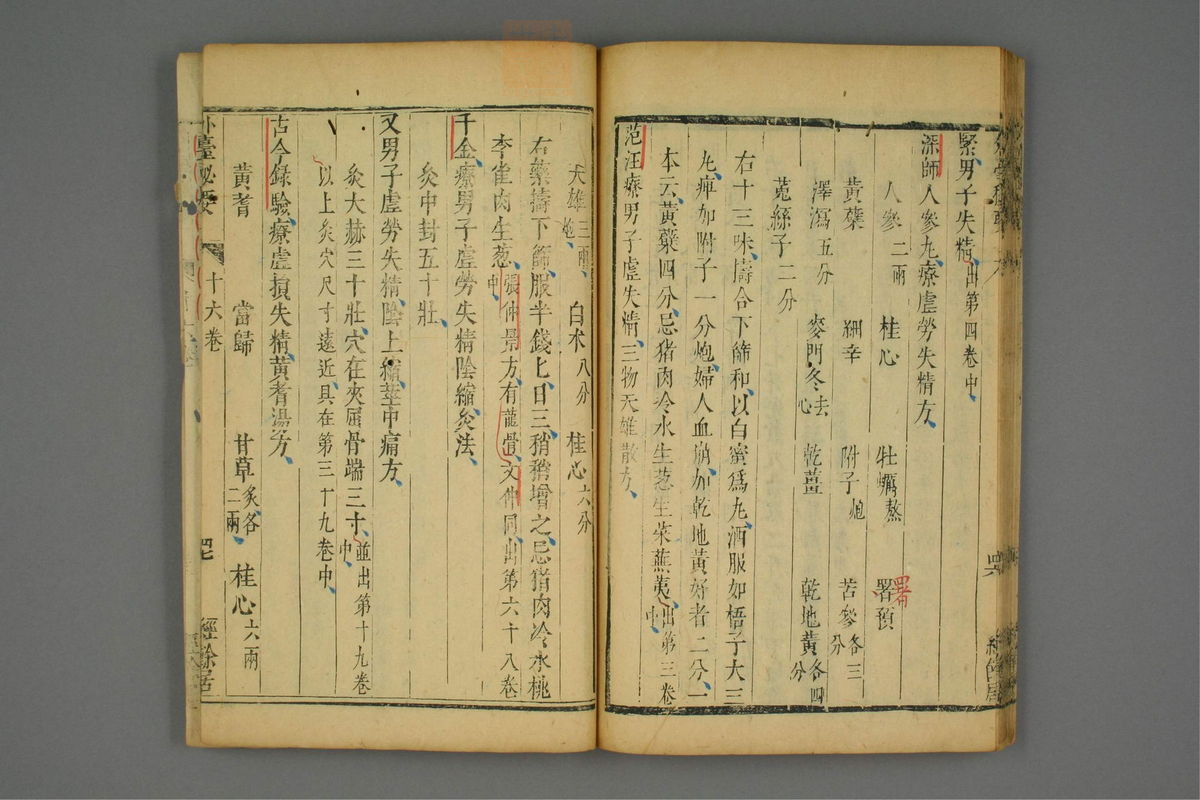 緊男子失精出第四卷中
深師人參丸療虛勞失精方
人參二兩 桂心 牡蠣熬 署預
黃蘗 細辛 附子炮 苦參各三分
澤瀉五分 麥門冬去心 乾薑 乾地黃各四分
菟絲子二分
右十三味擣合下篩和以白蜜爲丸酒服如梧子大三
丸痺加附子一分炮婦人血崩加乾地黃好者二分一
本云黃蘗四分忌猪肉冷水生葱生菜蕪荑出第三卷中
范汪療男子虛失精三物天雄散方
天雄三兩炮 白朮八分 桂心六分
右藥擣下篩服半錢匕日三稍稍增之忌猪肉冷水桃
李雀肉生葱張仲景方有龍骨文仲同出第六十八卷中
千金療男子虛勞失精陰縮灸法
灸中封五十壯
又男子虛勞失精陰上縮莖中痛方
灸大赫三十壯穴在夾屈骨端三寸並出第十九卷中
以上灸穴尺寸遠近具在第三十九卷中
古今錄驗療虛損失精黃耆湯方
黃耆 當歸 甘草炙各二兩 桂心六兩
外臺秘要 十六卷 經餘居
署